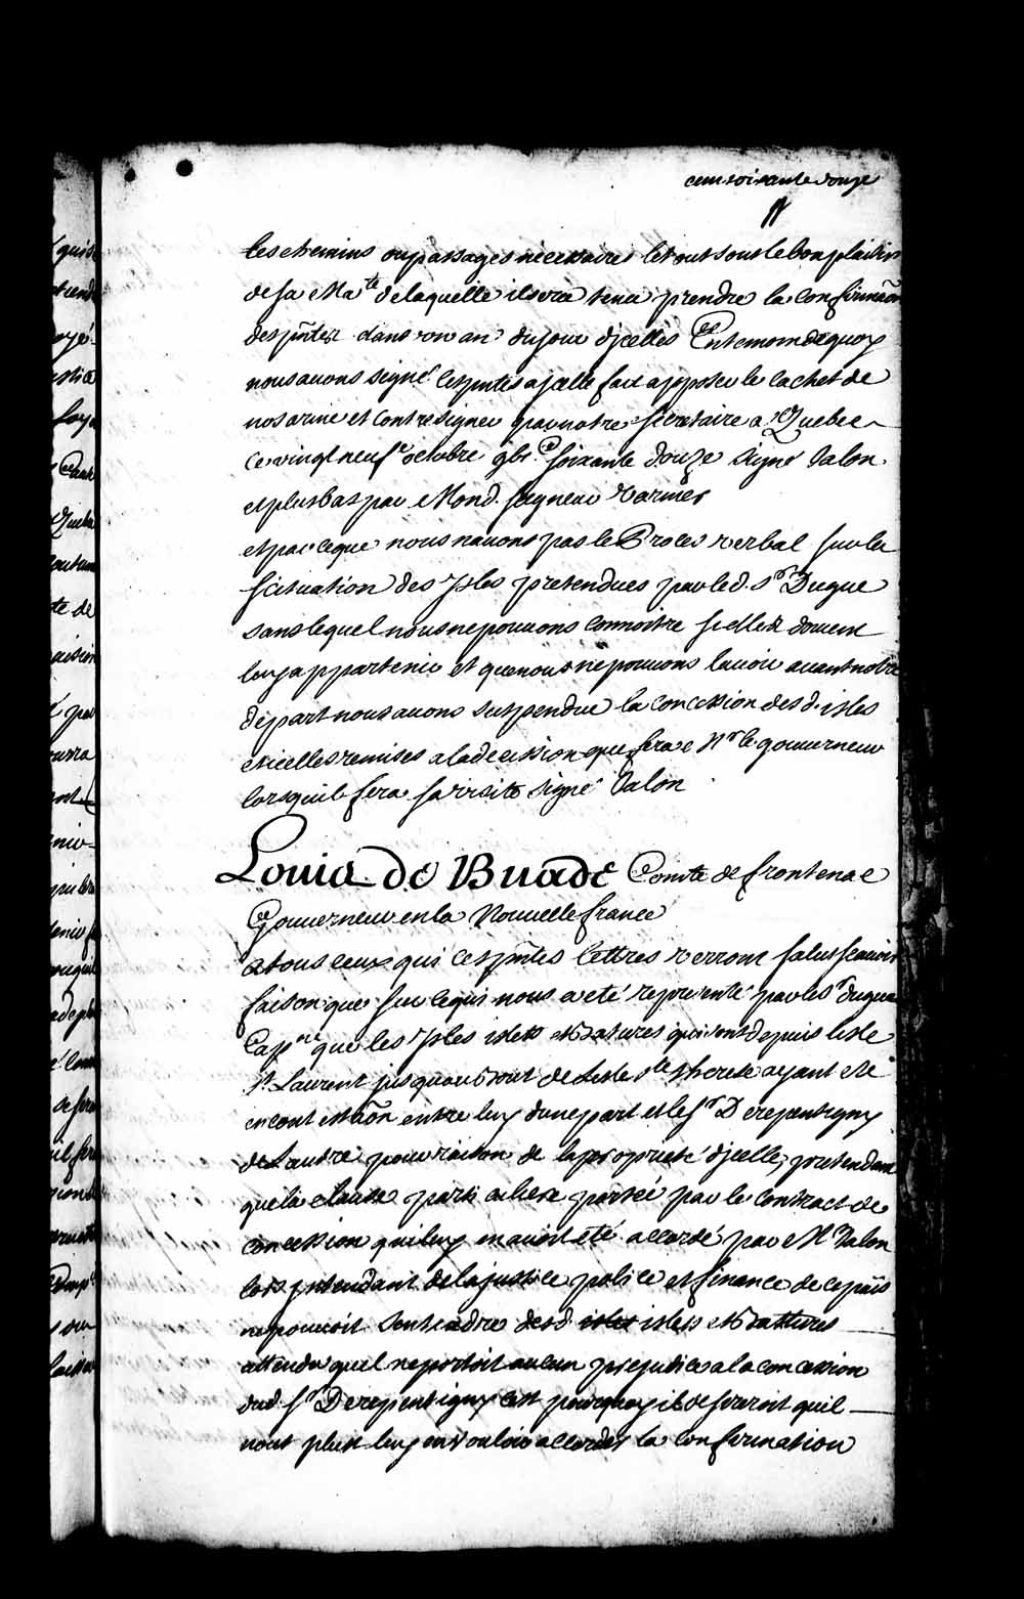 cent soixante douze
les chemins ou passages necessaires le tout sous le bon plaisir
de sa Ma.te de laquelle il sera tenu prendre la confirmãon
des pñtes dans un an du jour dycelles En temoin de quoy
nous auons signé les pntes a ycelle fait apposer le cachet de
nos arme et contresigner par notre secretaire a Quebec
ce vingt neuf.e octobre gbi.c soixante douze signé Talon
et plus bas par Mond. seigneur Varnier
et par ceque nous nauons pas le Proces verbal sur la
scituation des Isles pretendues par led. s.r Dugue
sans lequel nous ne pouuons connoitre si elles doiuent
luy appartenir et que nous ne pouuons lauoir auant notre
depart nous auons suspendue la concession des d. isles
et icelles remises a la decission que fera M.r le gouuerneur
lorsquil fera sa visite signé Talon
Louis de Buade Comte de frontenac
Gouuerneur en la Nouuelle france
a tous ceux qui ces pñtes lettres verront salut scauoir
faison que sur cequi nous a eté representé par le s.r dugue
Cap.ne que les Isles islets et Batures qui sont depuis lisle
s.t Laurent jusquau bout de Lisle s.te therese ayant ete
en contestãon entre luy dune part et le s.r De repentigny
de Lautre pour raison de la proprieté dycelle, pretendant
que la clause particuliere portée par le contract de
concession qui luy en auoit eté accordé par M.r Talon
lors Intendant de la justice police et finance de ce païs
ne pouuoit sentendre desd. isles islets et Battures
attendu quel ne portoit aucun prejudice a la concession
dud. s.r De repentigny cest pourquoy il desireroit quil
nout plut luy en vouloir accorder la confirmation